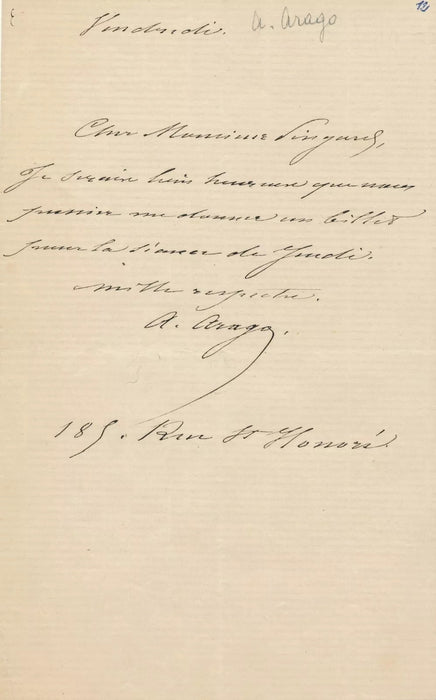 Vendredi. A. Arago 12
Cher Monsieur Pingard,
Je serais bien heureux que vous
puissiez me donner un billet
pour la séance de Jeudi.
mille respects.
A. Arago.
185. Rue St Honoré